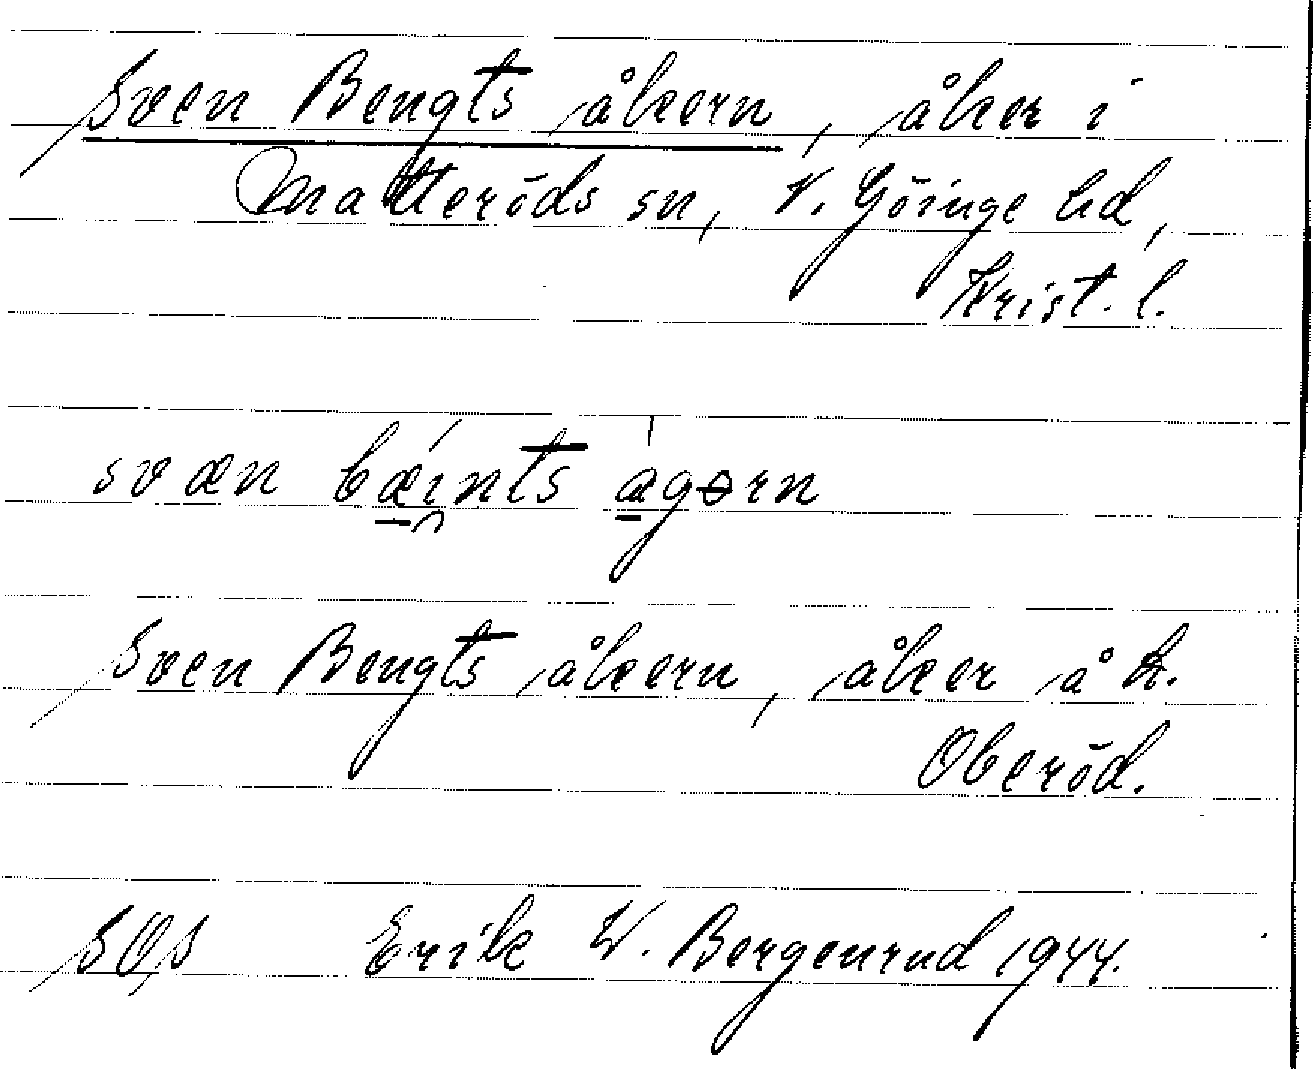 Sven Bengts åkern, åker i
Matteröds sn, V. Göinge hd,
Krist. l.
svæn bæints ágərn
Sven Bengts åkern, åker å h.
Oberöd.
SOS Erik W. Bergenrud 1944.